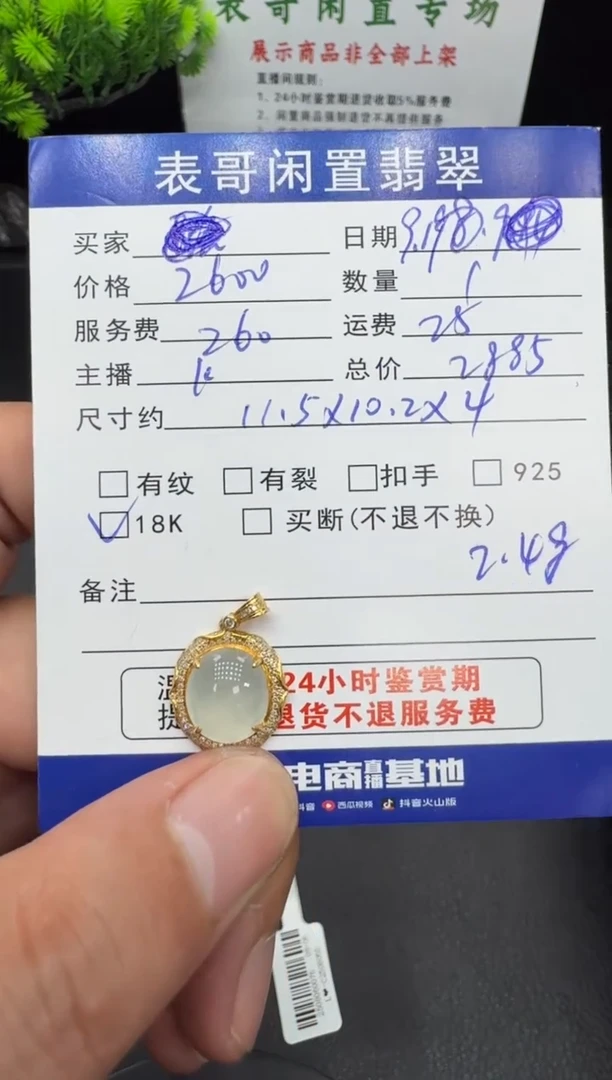 表哥闲置专场
展示商品非全部上架
直播间规则：
1、24小时鉴赏期退货收取5%服务费
2、闲置商品强制退货不再提供服务
表哥闲置翡翠
买家 日期
价格 2600 数量 1
服务费 260 运费 25
主播 总价 2885
尺寸约 11.5X10.2X4
有纹 有裂 扣手 925
18K 买断(不退不换)
2.4g
备注
温 24小时鉴赏期
提 退货不退服务费
电商直播基地
抖音 西瓜视频 抖音火山版